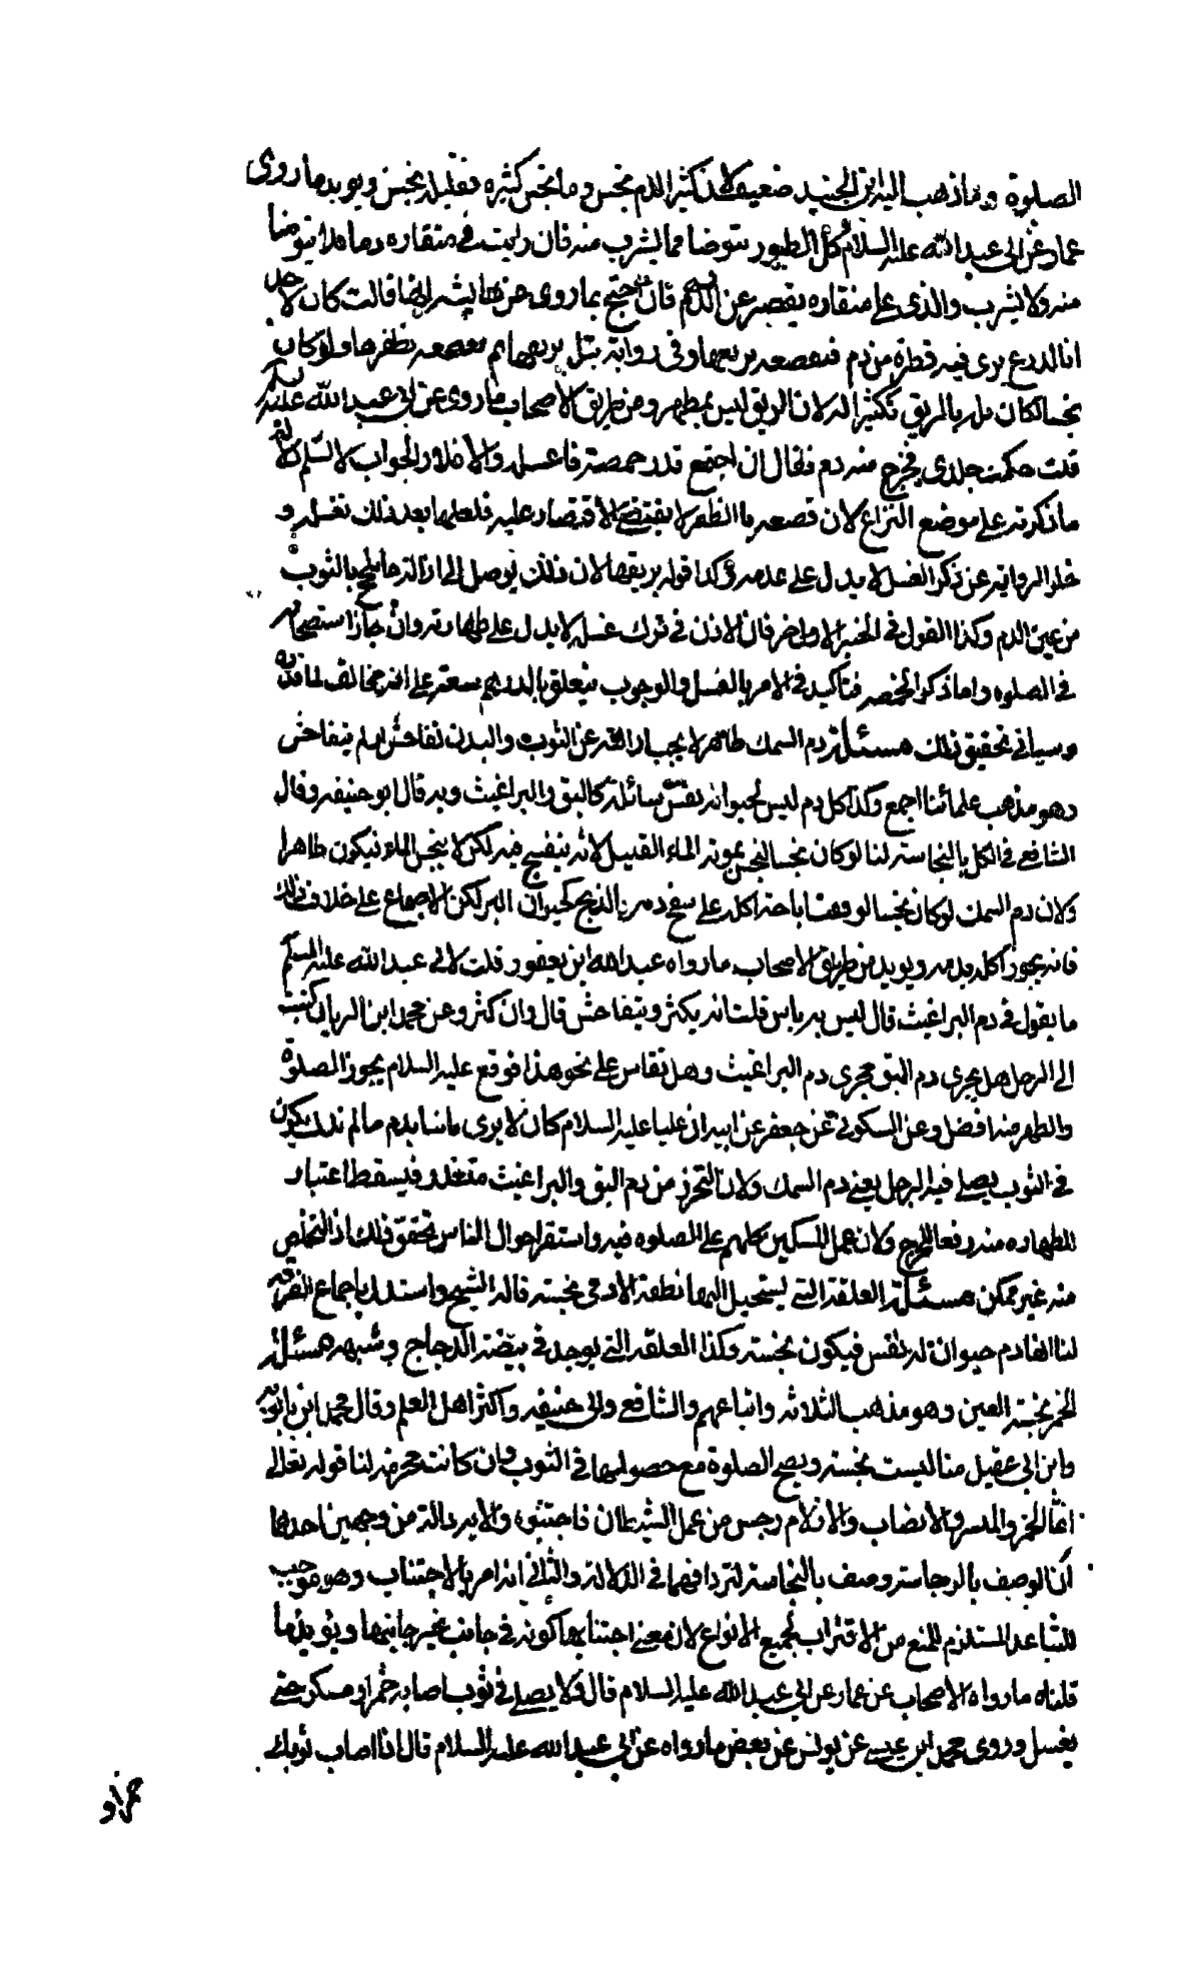 الصلوة وما ذهب اليه ابن الجنيد ضعيف لان كثير الدم نجس وما نجس كثيره فقليله نجس ويويده ما روى
عمار عن ابى عبد الله عليه السلام كل الطيور يتوضا مما يشرب منه فان رايت فى منقاره دما فلا تتوضا
منه ولا يشرب والذى على منقاره يقصر عن الدرهم فان احتج بما روى عن عايشه ايضا قالت كان لاحد
انا الدرع يرى فيه قطرة من دم فتقصعه بريقها وفى رواية تبل بريقها ثم تقصعه بظفرها ولو كان
نجسا لكان بله بالريق تكثيرا له لان الريق ليس بمطهر ومن طريق الاصحاب ما روى عن ابى عبد الله عليه السلم
قلت حككت جلدى فخرج منه دم فقال ان اجتمع قدر حمصة فاغسله والا فلا والجواب لا نسلم دلالة
ما ذكرته على موضع النزاع لان قصعه باالظفر لا يقتضى الاقتصار عليه فلعلها بعد ذلك تغسله و
خلو الرواية عن ذكر الغسل لا يدل على عدمه وكذا قوله بريقها لان ذلك يوصل الى ازالة ما بالثوب
من عين الدم وكذا القول فى الخبر الاول والاخر فان الاذن فى ترك غسله لا يدل على طهارته وان جاز استصحابه
فى الصلوه واما ذكر الحمصه فتاكيد فى الامر بالغسل والوجوب يتعلق بالدرهم سعة على انه مخالف لما قدمناه
وسياتى تحقيق ذلك مسئلة دم السمك طاهر لا يجب ازالته عن الثوب والبدن تفاحش او لم يتفاحش
وهو مذهب علمائنا اجمع وكذا كل دم ليس لحيوانه نفس سائلة كالبق والبراغيث وبه قال ابو حنيفه وقال
الشافعى فى الكل بالنجاسة لنا لو كان نجسا لنجس بموته الماء القليل لانه ينفسخ فيه لكن لا ينجس الماء فيكون طاهرا
ولان دم السمك لو كان نجسا لوقفت اباحة اكله على سفح دمه بالذبح كحيوان البر لكن الاجماع على خلاف ذلك
فانه يجوز اكله بدمه ويويد من طريق الاصحاب ما رواه عبد الله ابن يعفور قلت لابى عبد الله عليه السلم
ما يقول فى دم البراغيث قال ليس به باس قلت انه يكثر ويتفاحش قال وان كثر وعن محمد ابن الريان كتبت
الى الرجل هل يجرى دم البق مجرى دم البراغيث وهل نقاس على نحو هذا فوقع عليه السلام يجوز الصلوة
والطهر منه افضل وعن السكونى عن جعفر عن ابيه ان عليا عليه السلام كان لا يرى باسا بدم ما لم يذك يكون
فى الثوب يصلى فيه الرجل يعنى دم السمك ولان التحرز من دم البق والبراغيث متعذر فيسقط اعتبار
الطهاره منه دفعا للحرج ولان عمل المسلمين كلهم على الصلوه فيه واستقرا حوال الناس تحقق ذلك اذ التخلص
منه غير ممكن مسئلة العلقة التى يستحيل اليها نطفة الادمى نجسة قاله الشيخ واستدل باجماع الفرقه
لنا انها دم حيوان له نفس فيكون نجسة وكذا العلقه التى يوجد فى بيضة الدجاج وشبهه مسئلة
الخمر نجسة العين وهو مذهب الثلاثه واتباعهم والشافعى وابى حنيفه واكثر اهل العلم وقال محمد ابن بابويه
وابن ابى عقيل منا ليست نجسة ويصح الصلوة مع حصولها فى الثوب وان كانت محرمه لنا قوله تعالى
انما الخمر والميسر والانصاب والازلام رجس من عمل الشيطان فاجتنبوه والايه دالة من وجهين احدهما
ان الوصف بالرجاسة وصف بالنجاسة لترادفهما فى الدلالة والثانى انه امر بالاجتناب وهو موجب
للتباعد المستلزم للمنع من الاقتراب لجميع الانواع لان معنى اجتنابها كونه فى جانب غير جانبها ويؤيد ما
قلناه ما رواه الاصحاب عن عمار عن ابى عبد الله عليه السلام قال ولا يصلى فى ثوب اصابه خمر او مسكر حتى
يغسل وروى محمد ابن عيسى عن يونس عن بعض ما رواه عن ابى عبد الله عليه السلام قال اذا اصاب ثوبك
خمر او